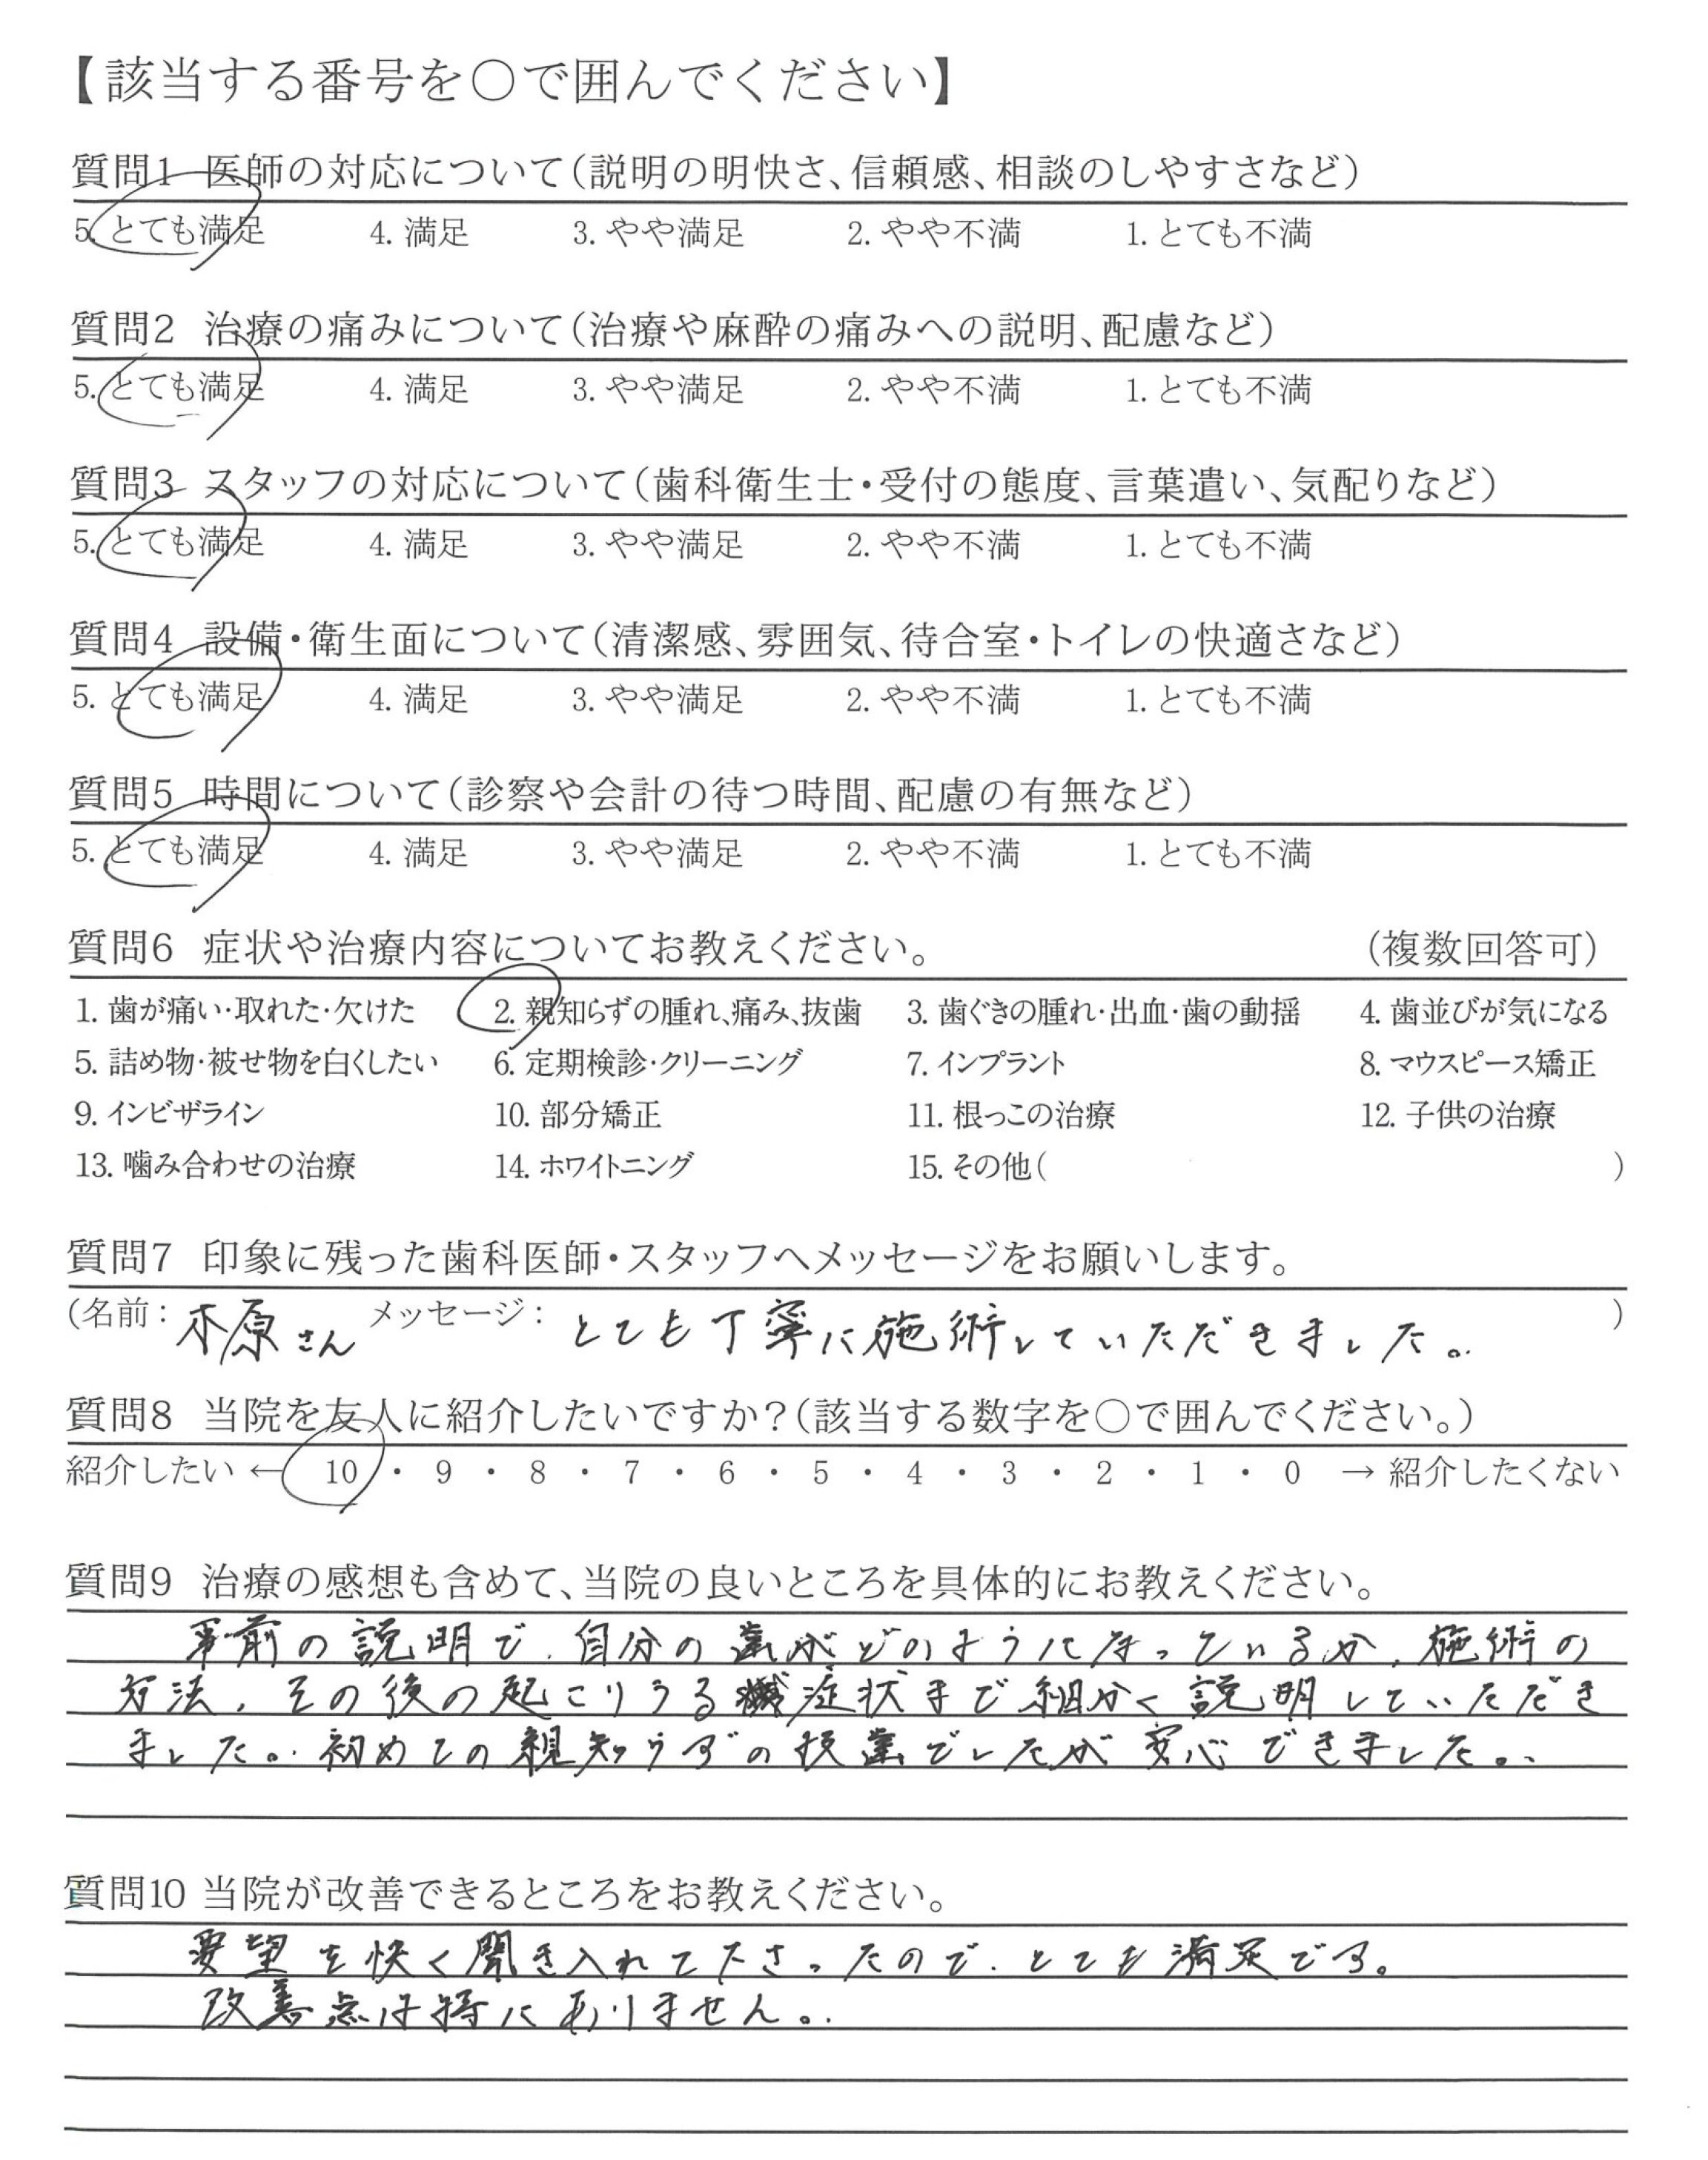 【該当する番号を○で囲んでください】
質問1 医師の対応について（説明の明快さ、信頼感、相談のしやすさなど）
5. とても満足 4. 満足 3. やや満足 2. やや不満 1. とても不満
質問2 治療の痛みについて（治療や麻酔の痛みへの説明、配慮など）
5. とても満足 4. 満足 3. やや満足 2. やや不満 1. とても不満
質問3 スタッフの対応について（歯科衛生士・受付の態度、言葉遣い、気配りなど）
5. とても満足 4. 満足 3. やや満足 2. やや不満 1. とても不満
質問4 設備・衛生面について（清潔感、雰囲気、待合室・トイレの快適さなど）
5. とても満足 4. 満足 3. やや満足 2. やや不満 1. とても不満
質問5 時間について（診察や会計の待つ時間、配慮の有無など）
5. とても満足 4. 満足 3. やや満足 2. やや不満 1. とても不満
質問6 症状や治療内容についてお教えください。 （複数回答可）
1. 歯が痛い・取れた・欠けた 2. 親知らずの腫れ、痛み、抜歯 3. 歯ぐきの腫れ・出血・歯の動揺 4. 歯並びが気になる
5. 詰め物・被せ物を白くしたい 6. 定期検診・クリーニング 7. インプラント 8. マウスピース矯正
9. インビザライン 10. 部分矯正 11. 根っこの治療 12. 子供の治療
13. 噛み合わせの治療 14. ホワイトニング 15. その他（ ）
質問7 印象に残った歯科医師・スタッフへメッセージをお願いします。
（名前：木原さん メッセージ：とても丁寧に施術していただきました。 ）
質問8 当院を友人に紹介したいですか？（該当する数字を○で囲んでください。）
紹介したい ← 10 ・ 9 ・ 8 ・ 7 ・ 6 ・ 5 ・ 4 ・ 3 ・ 2 ・ 1 ・ 0 → 紹介したくない
質問9 治療の感想も含めて、当院の良いところを具体的にお教えください。
事前の説明で、自分の歯がどのようになっているか、施術の
方法、その後の起こりうる症状まで細かく説明していただき
ました。初めての親知らずの抜歯でしたが安心できました。
質問10 当院が改善できるところをお教えください。
要望を快く聞き入れて下さったので、とても満足です。
改善点は特にありません。